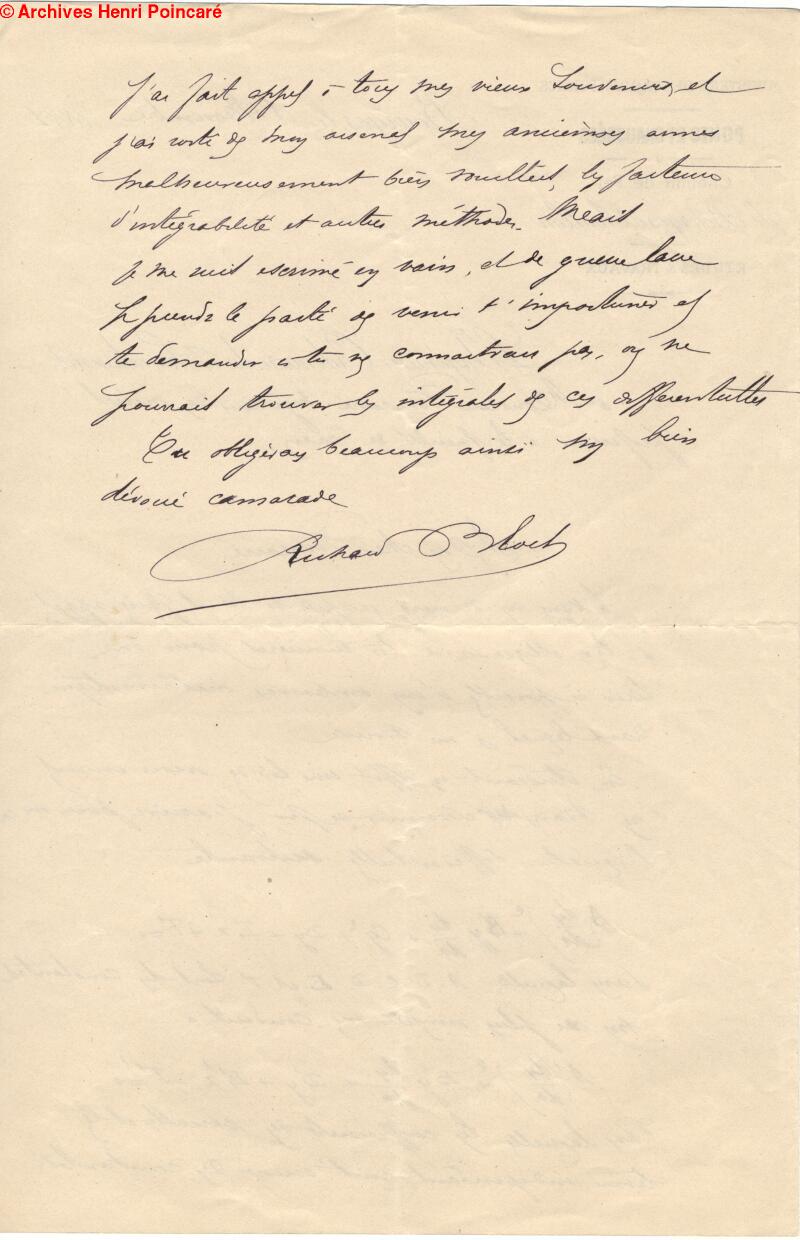 © Archives Henri Poincaré
J'ai fait appel à tous mes vieux souvenirs, et
j'ai sorti de mon arsenal mes anciennes armes
malheureusement bien rouillées, les facteurs
d'intégrabilité et autres méthodes. Mais
je me suis escrimé en vain, et de guerre lasse
je prends le parti de venir t'importuner et
te demander si tu ne connaitrais pas, ou ne
pourrais trouver les intégrales de ces différentielles
Tu obligeras beaucoup ainsi ton bien
dévoué camarade
Richard Bloch